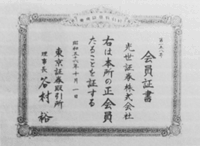 会員証書
光世証券株式会社
右は本所の正会員
たることを証する
昭和三六年十月一日
東京証券取引所
理事長 谷村裕